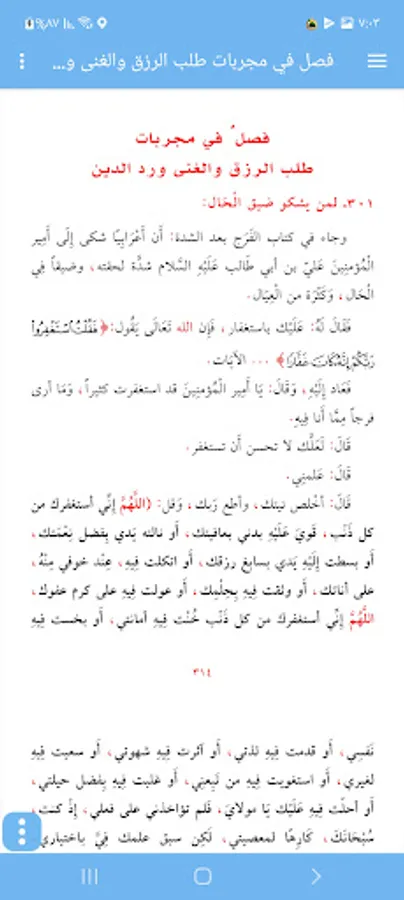 ٧:٠٣ ٨٧%
فصل في مجربات طلب الرزق والغنى و...
فصل في مجربات
طلب الرزق والغنى ورد الدين
٣٠١ـ لمن يشكو ضيق الْحَال:
وجاء في كتاب الفَرَج بعد الشدة: أَن أَعْرَابِيًا شكى إِلَى أَمِير
الْمُؤمنِينَ عَليّ بن أبي طَالب عَلَيْهِ السَّلَام شدَّة لحقته، وضيقاً فِي
الْحَال، وَكَثْرَة من العِيَال.
فَقَالَ لَهُ: عَلَيْك بِاسْتِغْفَار، فَإِن الله تَعَالَى يَقُول: ﴿فَقُلْتُ اسْتَغْفِرُوا
رَبَّكُمْ إِنَّهُ كَانَ غَفَّارًا﴾ ... الْآيَات.
فَعَاد إِلَيْهِ، وَقَالَ: يَا أَمِير الْمُؤمنِينَ قد استغفرت كثيراً، وَمَا أرى
فرجاً مِمَّا أَنا فِيهِ.
قَالَ: لَعَلَّك لَا تحسن أَن تستغفر.
قَالَ: عَلمنِي.
قَالَ: أخْلص نيتك، وأطع رَبك، وَقل: (اللَّهُمَّ إِنِّي أستغفرك من
كل ذَنْب، قوي عَلَيْهِ بدني بعافيتك، أَو نالته يَدي بِفضل نِعْمَتك،
أَو بسطت إِلَيْهِ يَدي بسابغ رزقك، أَو اتكلت فِيهِ، عِنْد خوفي مِنْهُ،
على أناتك، أَو وثقت فِيهِ بِحِلْمِك، أَو عولت فِيهِ على كرم عفوك،
اللَّهُمَّ إِنِّي أستغفرك من كل ذَنْب خُنْت فِيهِ أمانتي، أَو بخست فِيهِ
٣١٤
نَفسِي، أَو قدمت فِيهِ لذتي، أَو آثرت فِيهِ شهوتي، أَو سعيت فِيهِ
لغيري، أَو استغويت فِيهِ من تَبِعنِي، أَو غلبت فِيهِ بِفضل حيلتي،
أَو أحلّت فِيهِ عَلَيْك يَا مولَايَ، فَلم تؤاخذني على فعلي، إِذْ كنت،
سُبْحَانَكَ، كَارِهًا لمعصيتي، لَكِن سبق علمك فِيَّ بِاخْتِيَارِي،